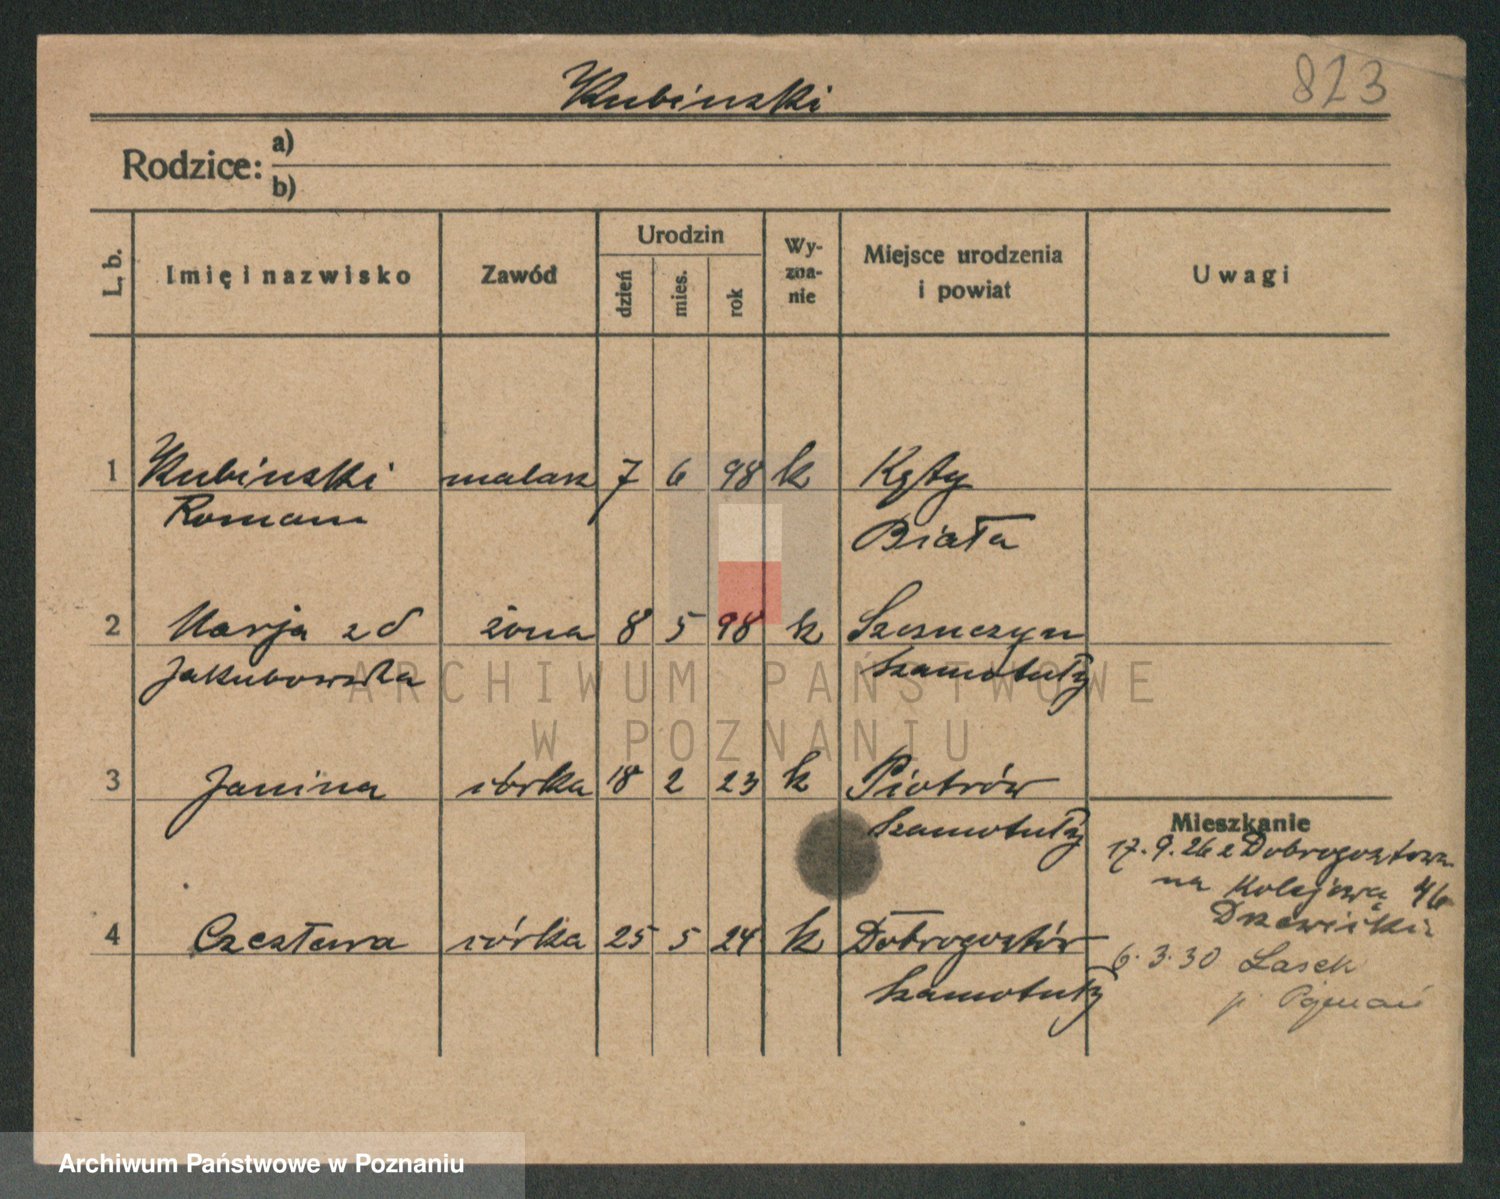 Kubinski
823
Rodzice: a)
b)
L. b.
Imię i nazwisko
Zawód
Urodzin
dzień
mies.
rok
Wy-
zna-
nie
Miejsce urodzenia
i powiat
Uwagi
1 Kubinski malarz 7 6 98 k Kęty
Roman Biała
2 Marja zd żona 8 5 98 k
Jakubowska Szamotuły
3 Janina córka 18 2 23 k Piotrów
Szamotuły
Mieszkanie
17.9.26 z Dobrogostowa
na Kolejową 46
4 Czesława córka 25 5 24 k Dobrogostów
Szamotuły
6.3.30 Lasek
p.
ARCHIWUM PAŃSTWOWE
W POZNANIU
Archiwum Państwowe w Poznaniu